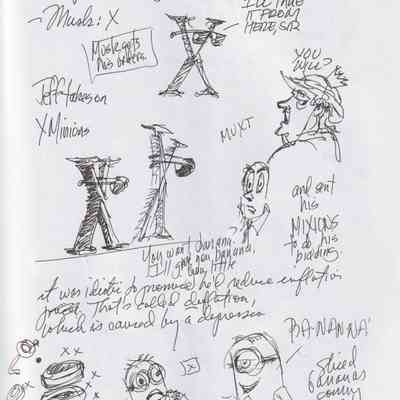 Musk: X
I'LL TAKE
IT FROM
HERE, SIR
Musk gets
his
YOU
WILL?
Jeff
X Minions
MUXT
and sent
his
MIXIONS
to do his
bidding.
You want banana.
I'll give you banana,
little
it was idiotic to promise he'd reduce inflation
That's called deflation,
which is caused by a depression
BANANNA!
Sliced
bananas
coming
x x
x
x x